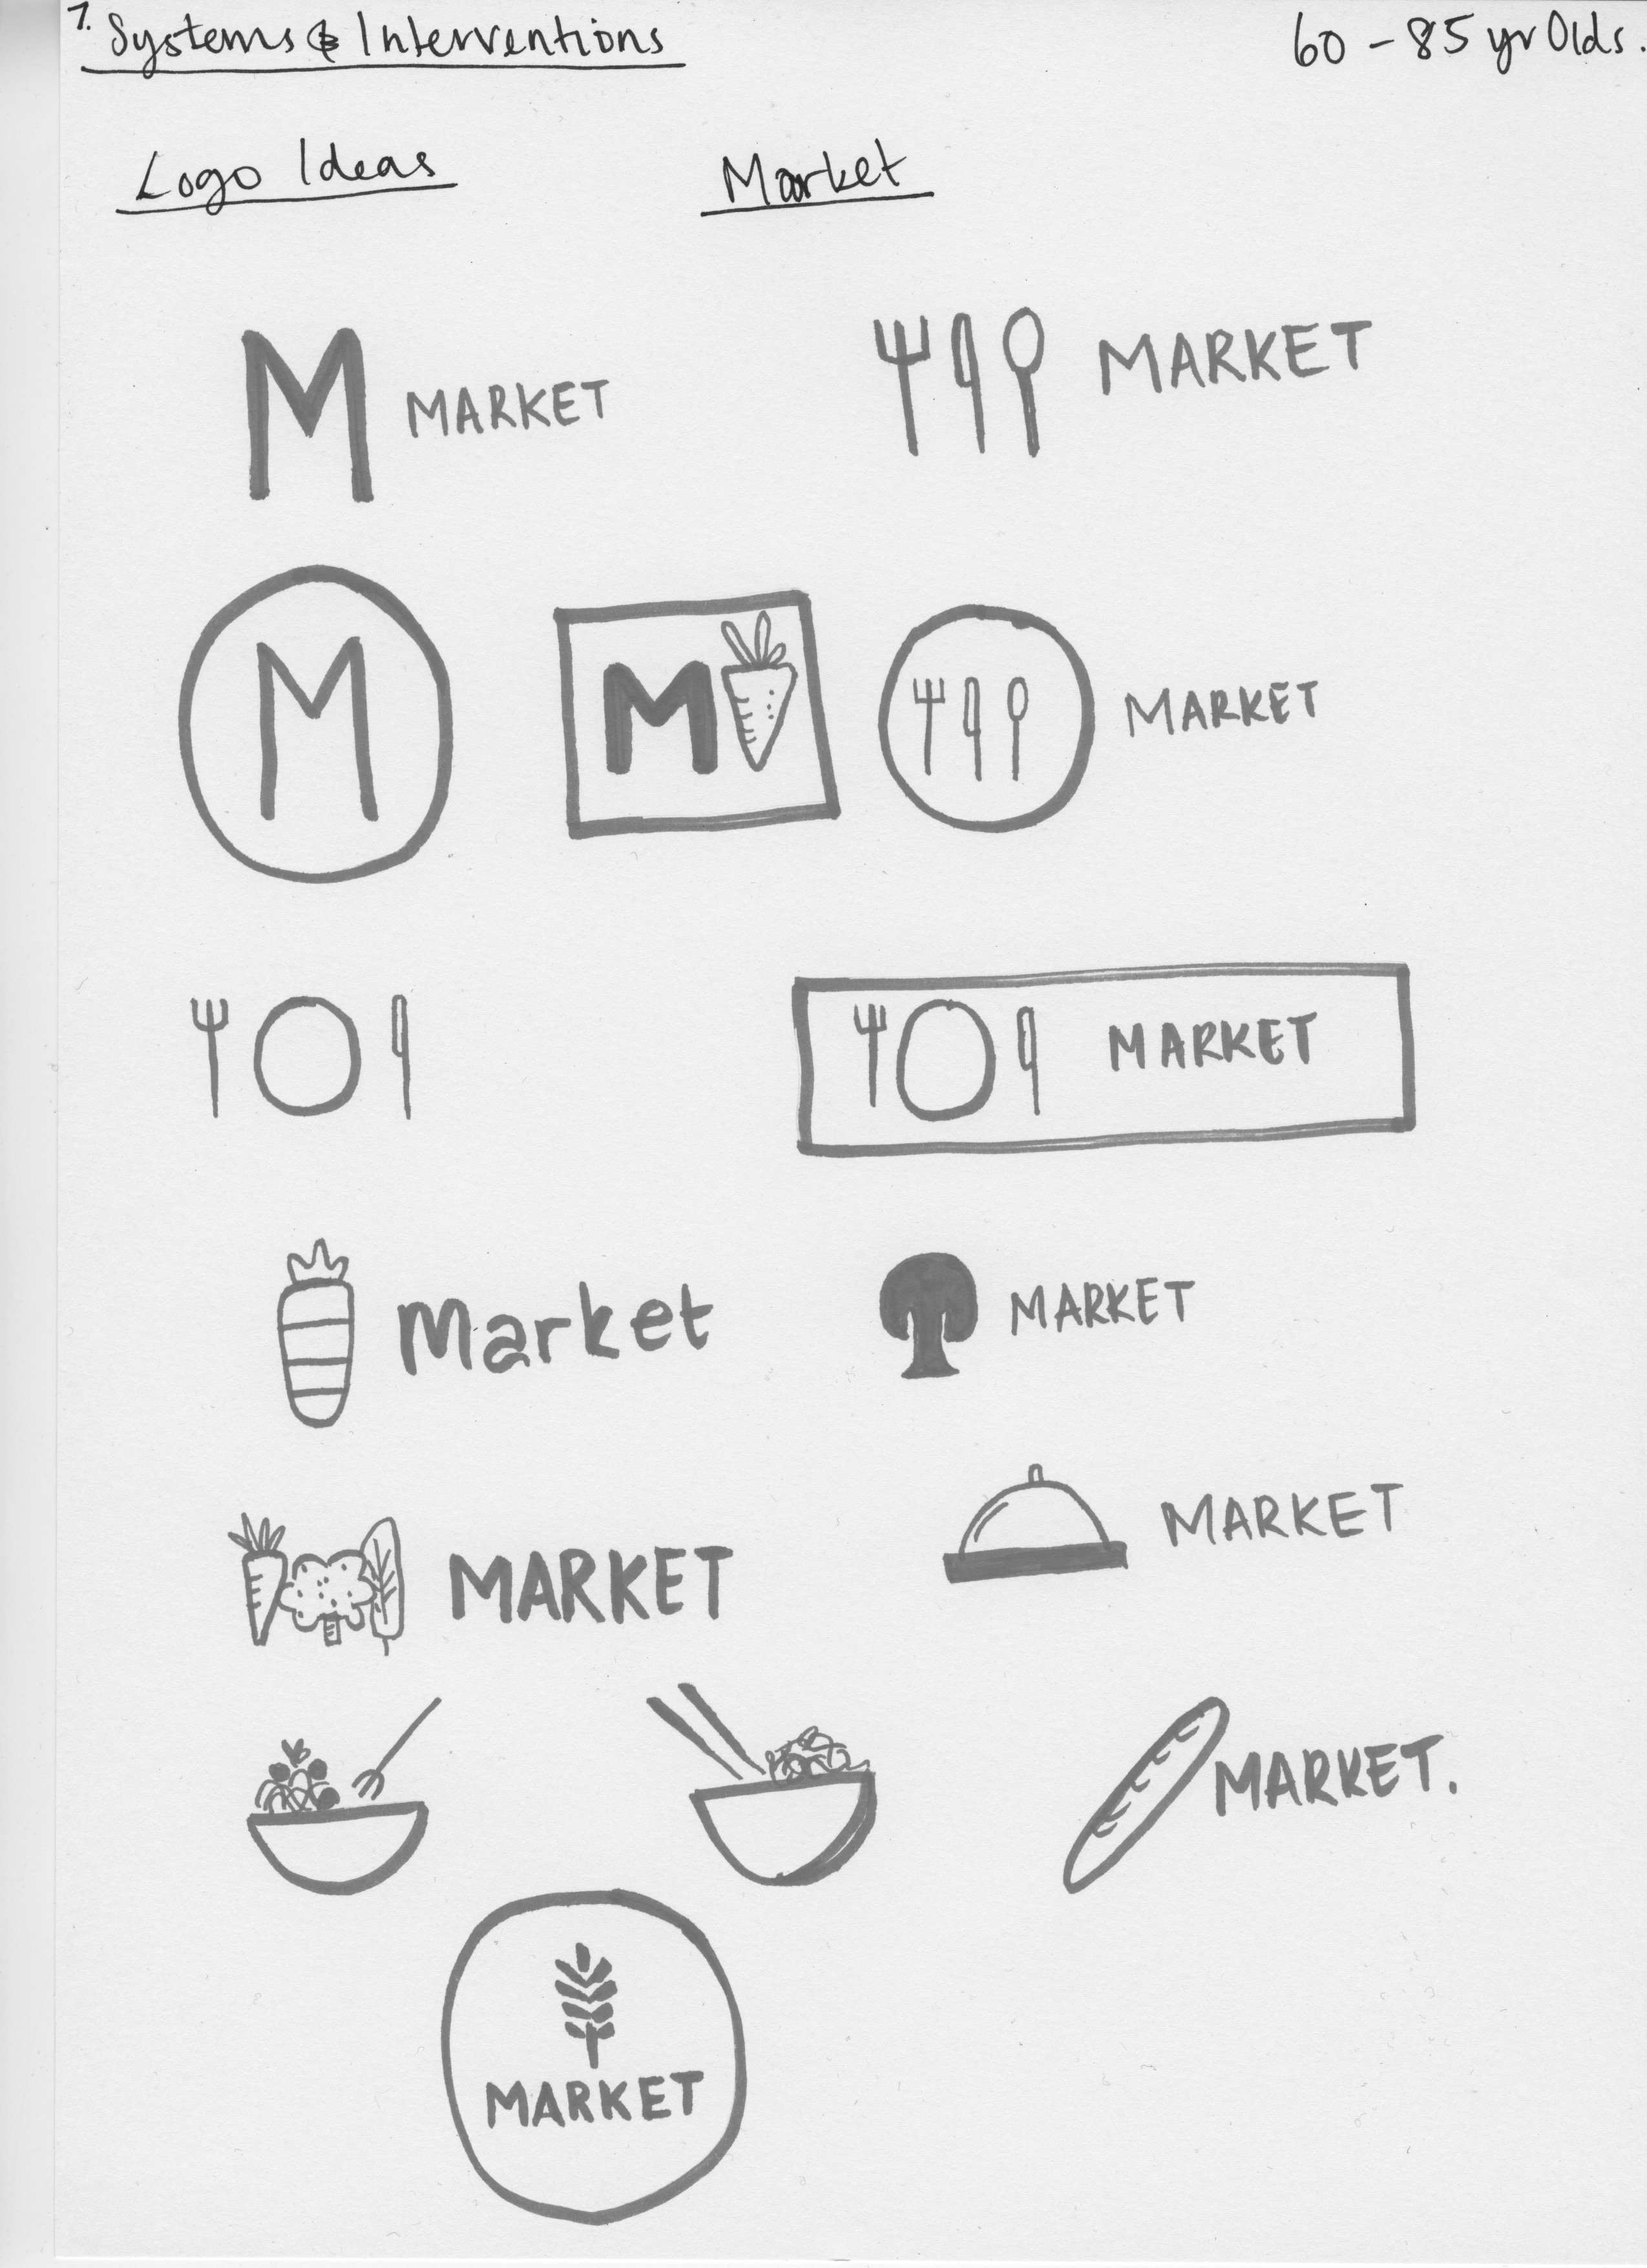 1. Systems & Interventions
60 - 85 yr Olds.
Logo Ideas
Market
M MARKET
MARKET
M
M
MARKET
MARKET
Market
MARKET
MARKET
MARKET
MARKET.
MARKET